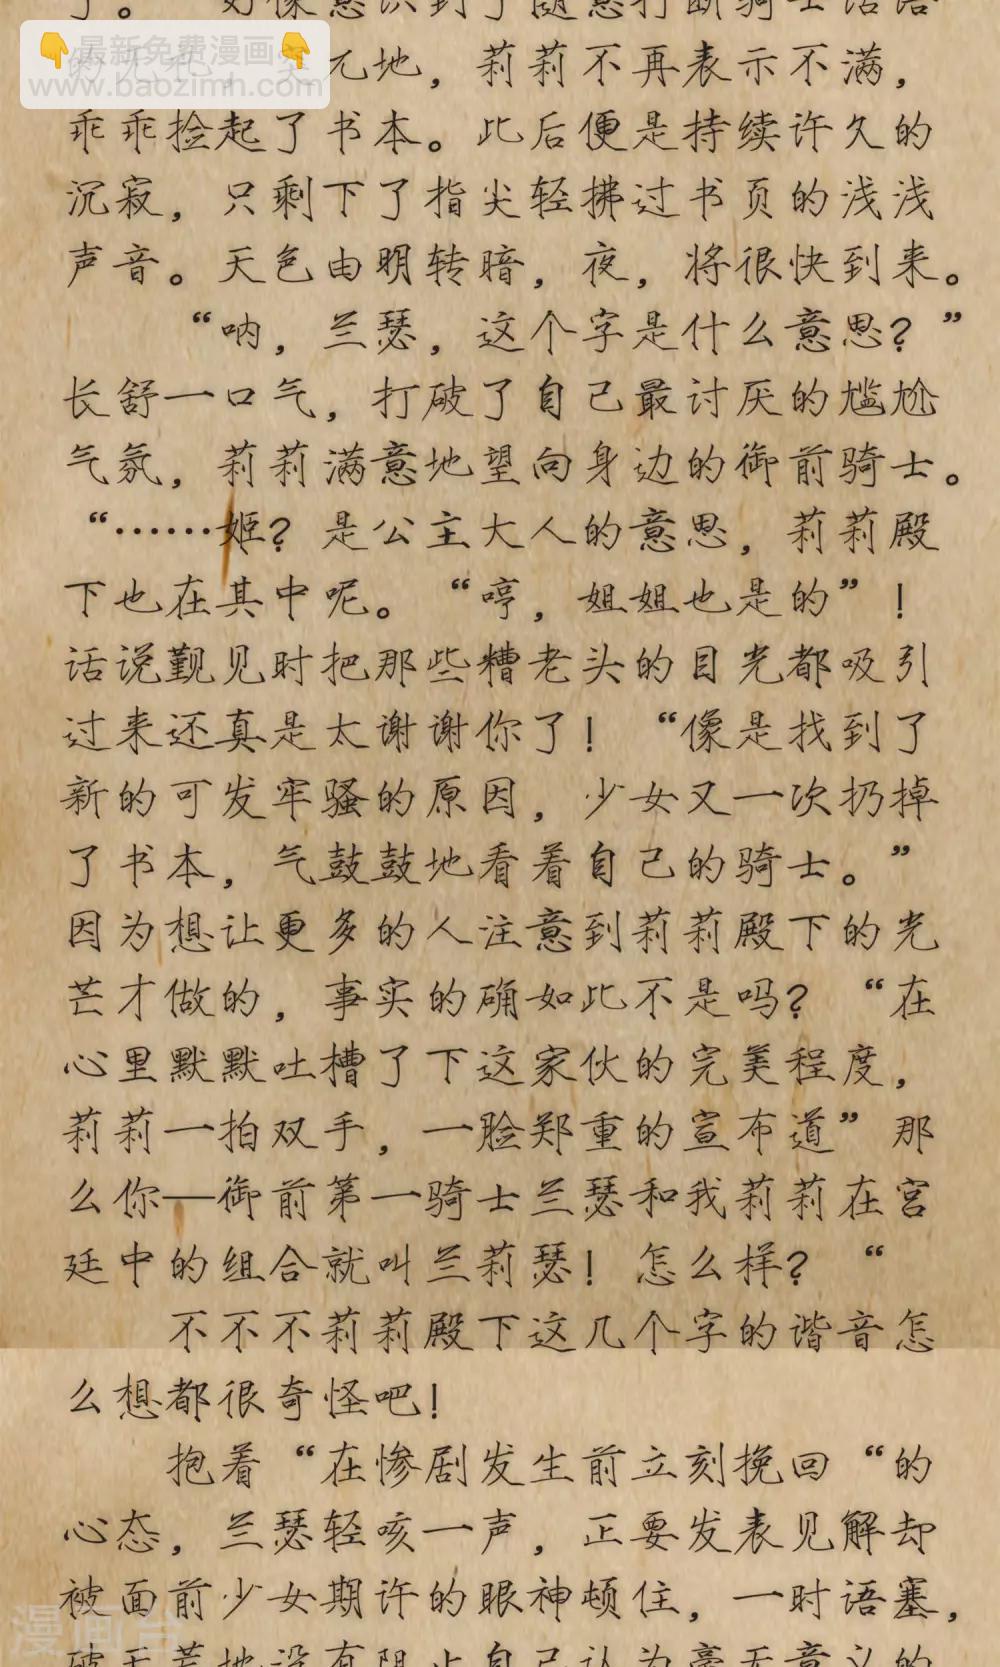 了。 好像意识到了随意打断骑士话语
最新免费漫画
的无礼，突兀地，莉莉不再表示不满，
www.baozimh.com
乖乖捡起了书本。此后便是持续许久的
沉寂，只剩下了指尖轻拂过书页的浅浅
声音。天色由明转暗，夜，将很快到来。
“呐，兰瑟，这个字是什么意思？”
长舒一口气，打破了自己最讨厌的尴尬
气氛，莉莉满意地望向身边的御前骑士。
“……姬？是公主大人的意思，莉莉殿
下也在其中呢。“哼，姐姐也是的”！
话说觐见时把那些糟老头的目光都吸引
过来还真是太谢谢你了！“像是找到了
新的可发牢骚的原因，少女又一次扔掉
了书本，气鼓鼓地看着自己的骑士。”
因为想让更多的人注意到莉莉殿下的光
芒才做的，事实的确如此不是吗？“在
心里默默吐槽了下这家伙的完美程度，
莉莉一拍双手，一脸郑重的宣布道”那
么你—御前第一骑士兰瑟和我莉莉在宫
廷中的组合就叫兰莉瑟！怎么样？“
不不不莉莉殿下这几个字的谐音怎
么想都很奇怪吧！
抱着“在惨剧发生前立刻挽回“的
心态，兰瑟轻咳一声，正要发表见解却
被面前少女期许的眼神顿住，一时语塞，
漫画台
破天荒地没有阻止自己认为毫无意义的